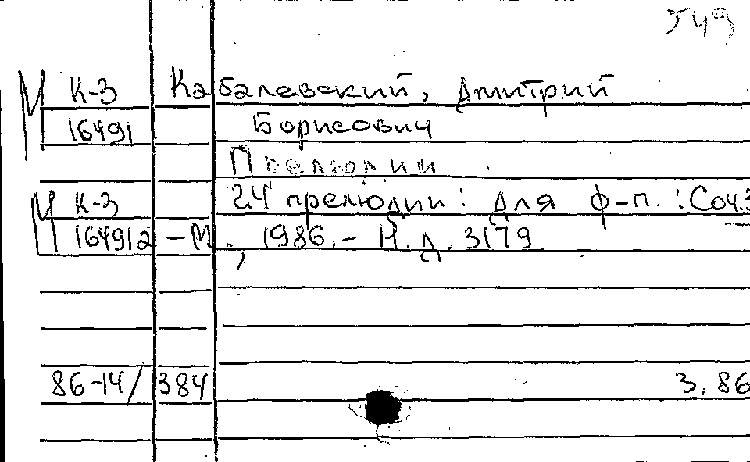 549
К-3 Кабалевский, Дмитрий
16491 Борисович
Прелюдии
К-3 24 прелюдии: для ф-п.: Соч3
16491а -М., 1986.- Н.д. 3179
86-14/384 3.86